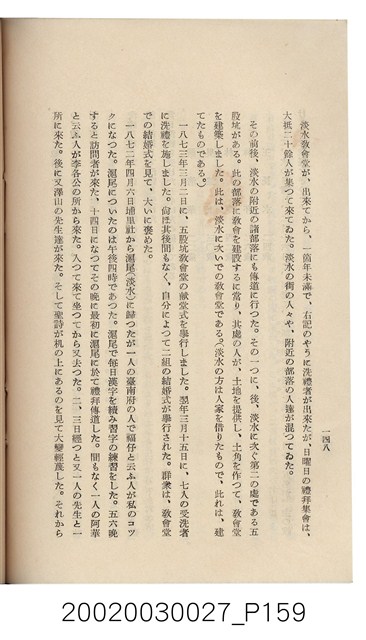 一四八
淡水敎會堂が、出來てから、一箇年未滿で、右記のやうに洗禮者が出來たが、日曜日の禮拜集會は、
大抵二十餘人が集つて來てゐた。淡水の街の人々や、附近の部落の人達が混つてゐた。
その前後、淡水の附近の諸部落にも傳道に行つた。その一つに、後、淡水に次ぐ第二の處である五
股坑がある。此の部落に敎會を建設するに當り、其處の人が、土地を提供し、土角を作つて、敎會堂
を建築しました。此は、淡水に次いでの敎會堂である。(淡水の方は人家を借りたもので、此れは、建
てたものである。)
一八七三年三月二日に、五股坑敎會堂の獻堂式を擧行しました。翌年三月十五日に、七人の受洗者
に洗禮を施しました。尙ほ其後間もなく、自分によつて二組の結婚式が擧行された。群衆は、敎會堂
での結婚式を見て、大いに褒めた。
一八七二年四月六日埔里社から滬尾(淡水)に歸つたが一人の臺南府の人で福仔と云ふ人が私のコツ
クになつた。滬尾についたのは午後四時であつた。滬尾で每日漢字を續み習字の練習をした。五六晚
すると訪問者が來た、十四日になつてその晚に最初に滬尾に於て禮拜傳道した。間もなく一人の阿華
と云ふ人が李各公の所から來た。入つて來て坐つてから又去つた。二、三日經つと又一人の先生と一
所に來た。後に又澤山の先生達が來た。そして聖詩が机の上にあるのを見て大變輕蔑した。それから
20020030027_P159